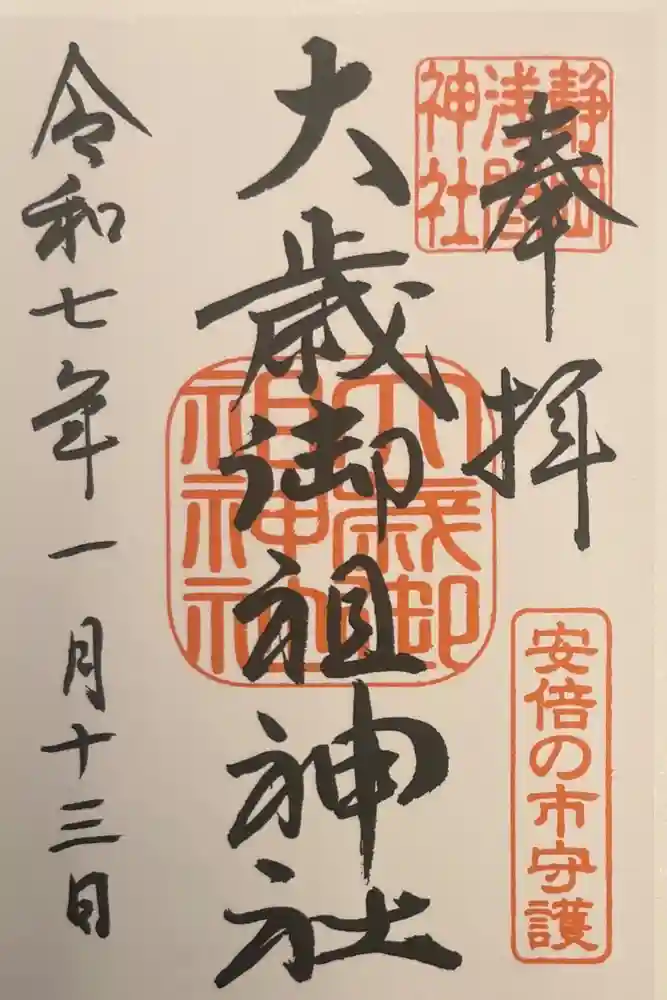 奉拝
静岡
浅間
神社
安倍の市守護
大歳御祖神社
大歳御
祖神社
令和七年一月十三日